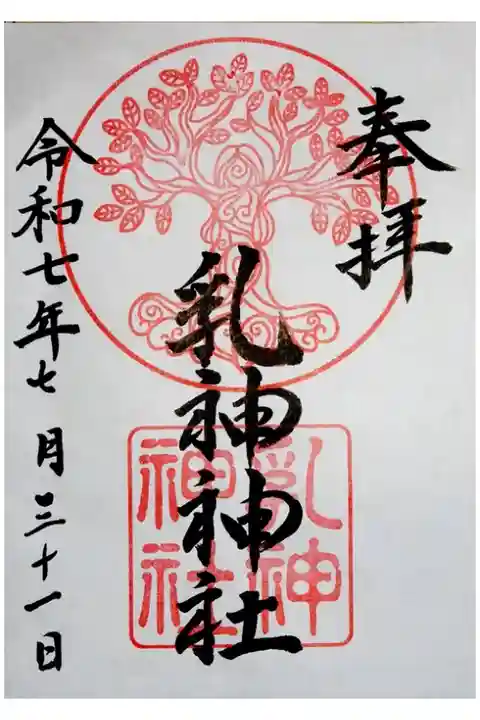 奉拝
乳神神社
乳神
神社
令和七年七月三十一日